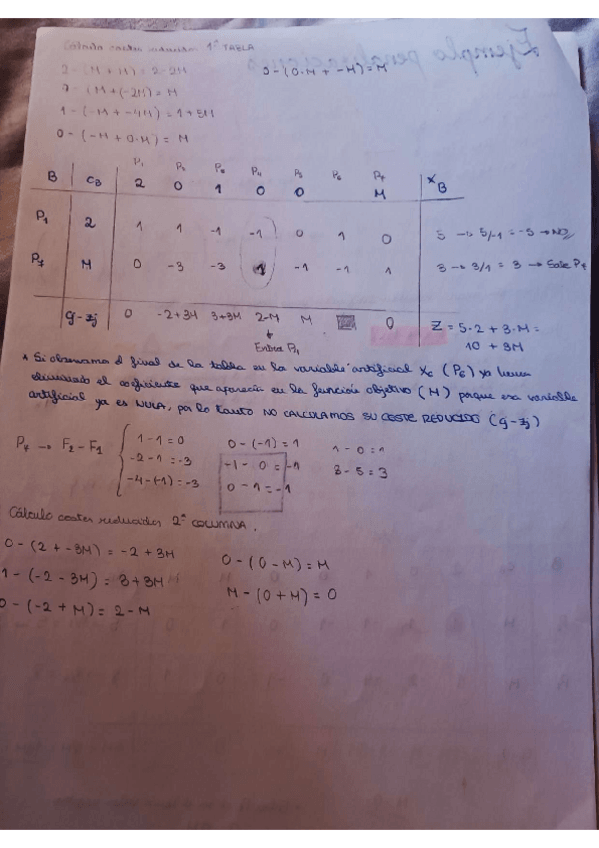 Cálculo costes reducidos 1ª TABLA
Ejemplo penalizaciones
2 - (M + M) = 2 - 2M
0 - (0·M + -M) = M
0 - (M + (-2M) = M
1 - (-M + -4M) = 1 + 5M
0 - (-M + 0·M) = M
P1 P2 P3 P4 P5 P6 P7
B CB 2 0 1 0 0 M XB
P1 2 1 1 -1 -1 0 1 0 5 → 5/-1 = -5 → NO
P7 M 0 -3 -3 1 -1 -1 1 3 → 3/1 = 3 → Sale P7
Cj - Zj 0 -2+3M 3+3M 2-M M 0 Z = 5·2 + 3·M =
10 + 3M
Entra P4
* Si observamos al final de la tabla en la variable artificial X6 (P6) ya hemos
eliminado el coeficiente que aparecía en la función objetivo (M) porque era variable
artificial ya es NULA, por lo tanto NO CALCULAMOS SU COSTE REDUCIDO (Cj - Zj)
P7 → F2 - F1
1 - 1 = 0 0 - (-1) = 1 1 - 0 = 1
-2 - 1 = -3 -1 - 0 = -1 8 - 5 = 3
-4 - (-1) = -3 0 - 1 = -1
Cálculo costes reducidos 2ª COLUMNA.
0 - (2 + -3M) = -2 + 3M 0 - (0 - M) = M
1 - (-2 - 3M) = 3 + 3M M - (0 + M) = 0
0 - (-2 + M) = 2 - M